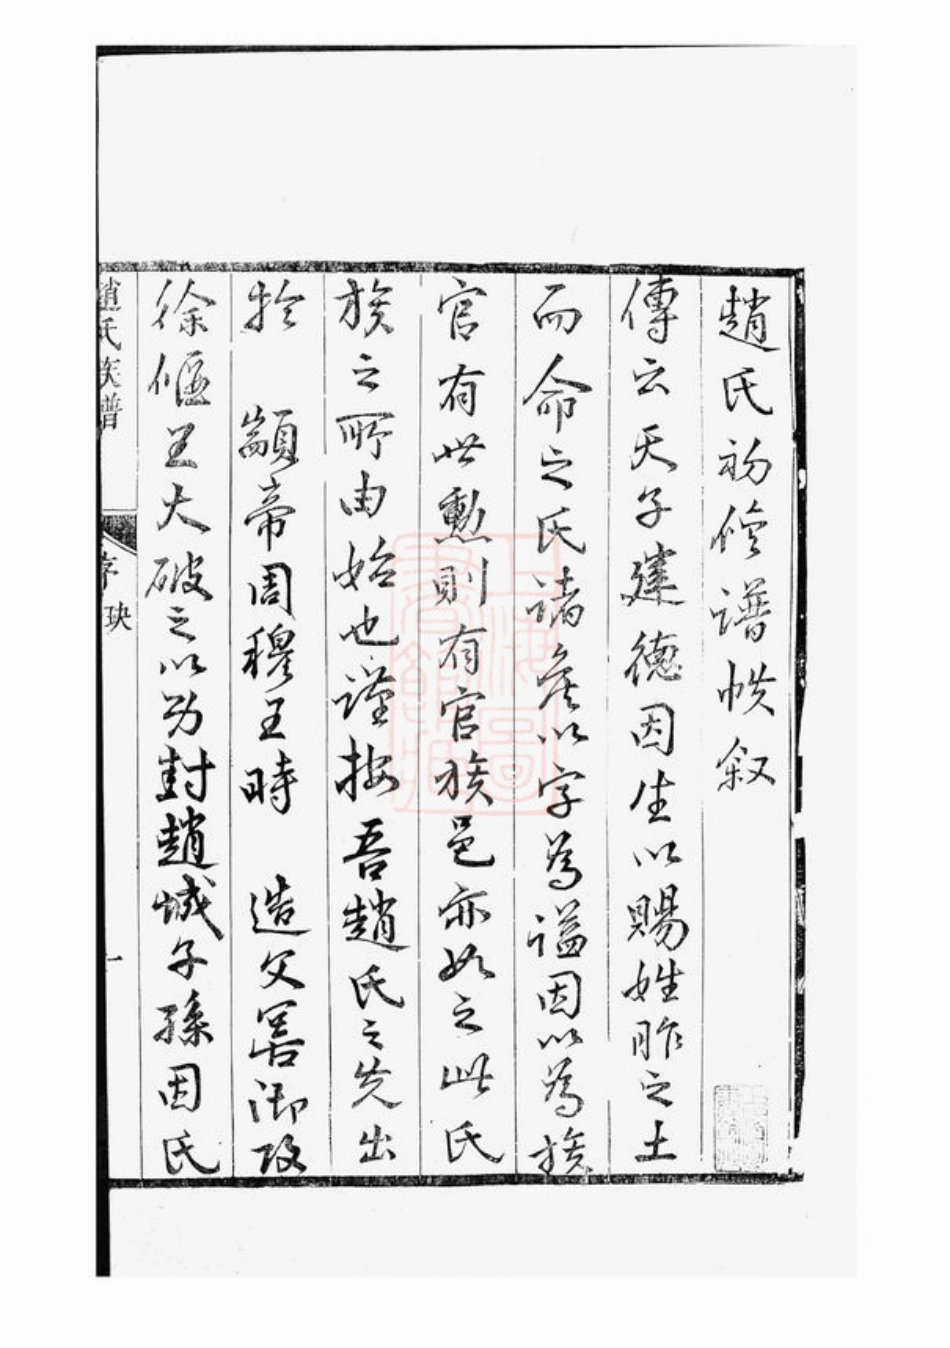 趙氏初修譜帙叙
傳云天子建德因生以賜姓胙之土
而命之氏諸矦以字為謚因以為族
官有世勲則有官族邑亦如之此氏
族之所由始也謹按吾趙氏之先出
於 顓帝周穆王時 造父善御攻
徐偃王大破之以功封趙城子孫因氏
趙氏族譜
序
玦
一